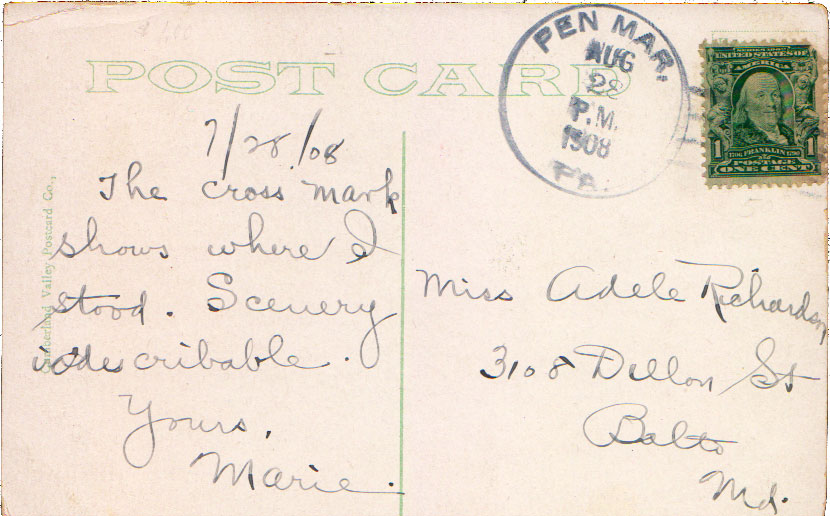 POST CARD
PEN MAR.
AUG
28
P.M.
1908
PA.
SERIES 1902
UNITED STATES OF
AMERICA
1 1706 FRANKLIN 1790 1
POSTAGE
ONE CENT
7/28/08
The cross mark
shows where I
stood. Scenery
indescribable.
Yours,
Marie.
Cumberland Valley Postcard Co.,
Miss Adele Richardson
3108 Dillon St
Balto
Md.